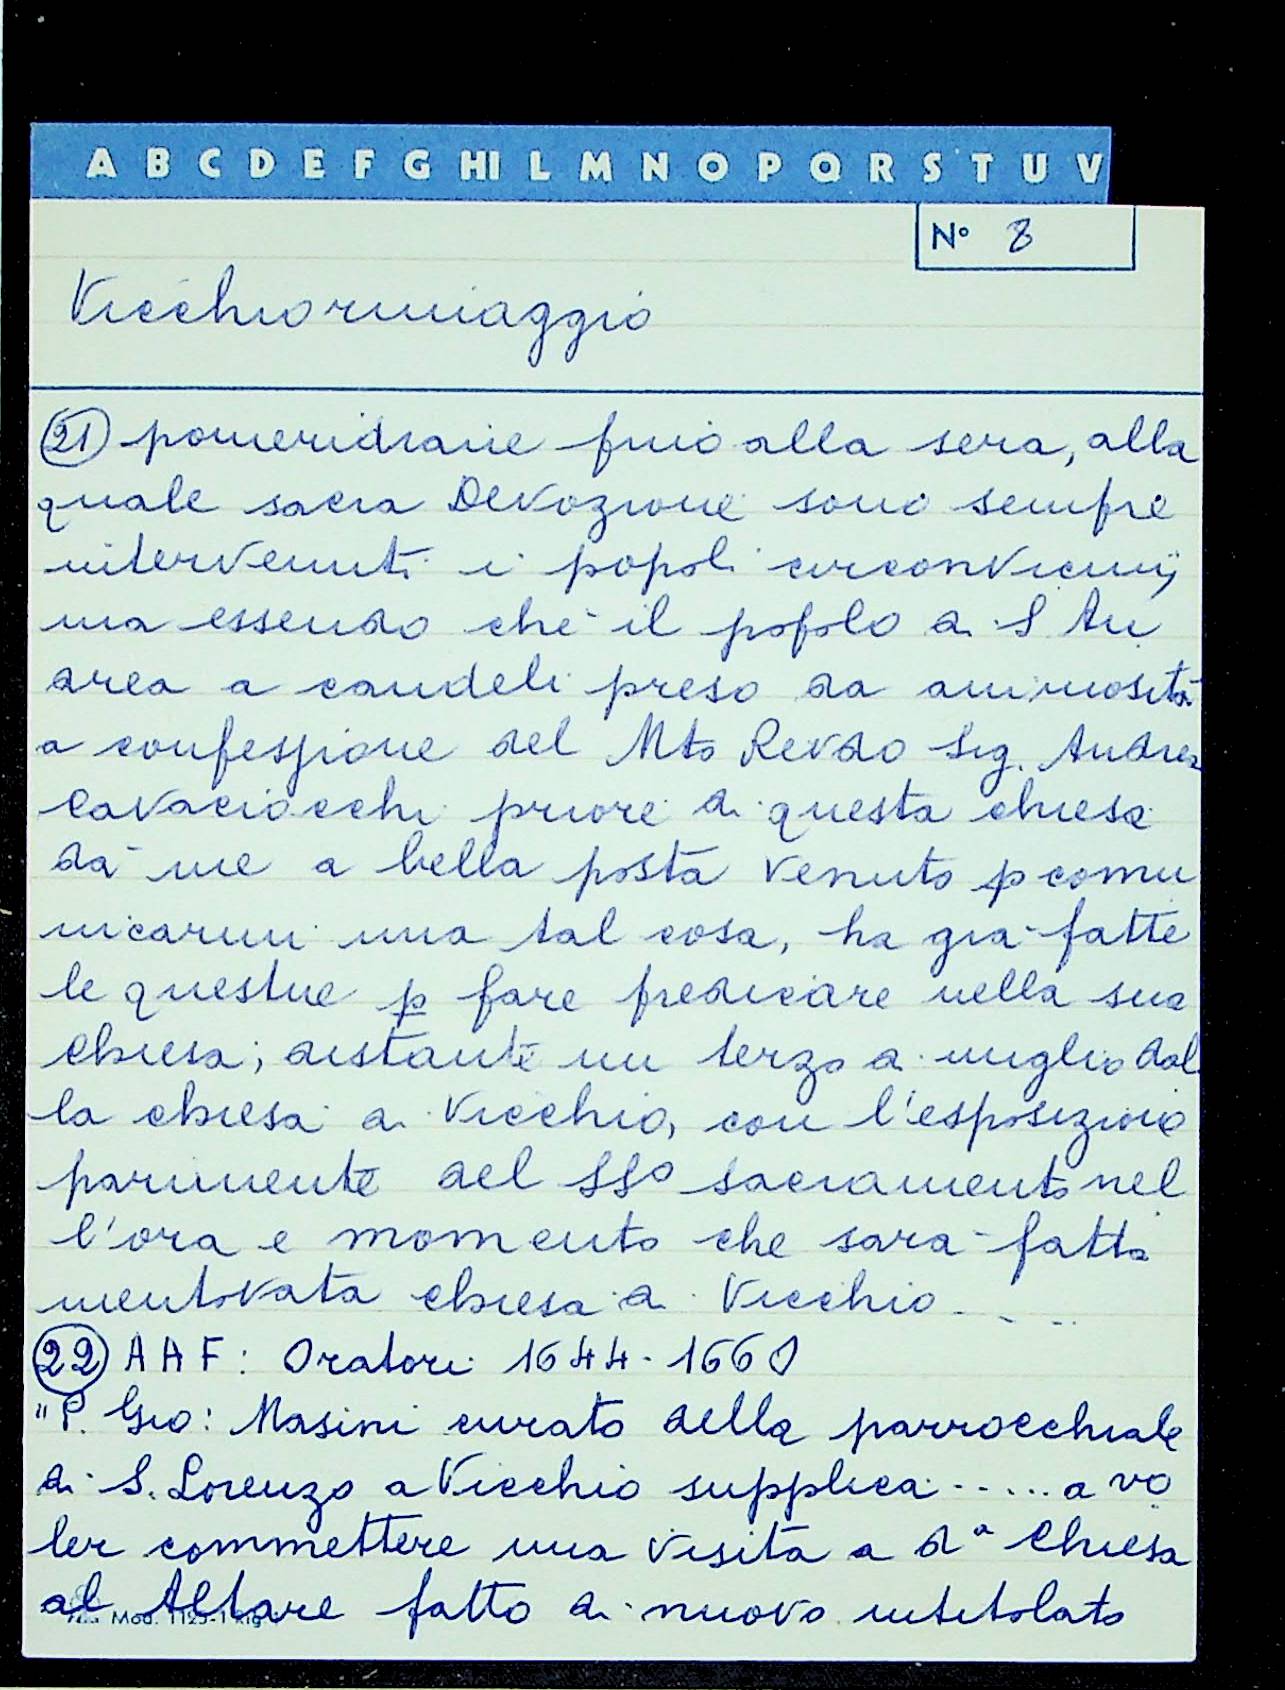 A B C D E F G HI L M N O P Q R S T U V
N° 8
Vicchiorimaggio
21 pomeridiane fino alla sera, alla
quale sacra Devozione sono sempre
intervenuti i popoli circonvicinij
ma essendo che il popolo di S An
drea a candeli preso da animosità
a confessione del Mto Revdo Sig. Andrea
Cavaciocchi priore di questa chiesa
da me a bella posta venuto p comu
nicarmi una tal cosa, ha già fatte
le questue p fare predicare nella sua
chiesa; distante un terzo di miglio dal
la chiesa di Vicchio, con l'esposizione
parimente del SSo sacramento nel
l'ora e momento che sarà fatta
mentovata chiesa di Vicchio.....
22 AAF: Oratori 1644-1660
"P. Gio: Masini curato della parrocchiale
di S. Lorenzo a Vicchio supplica ..... a vo
ler commettere una visita a da Chiesa
al Altare fatto di nuovo intitolato
Mod. 1125-1 Rig.